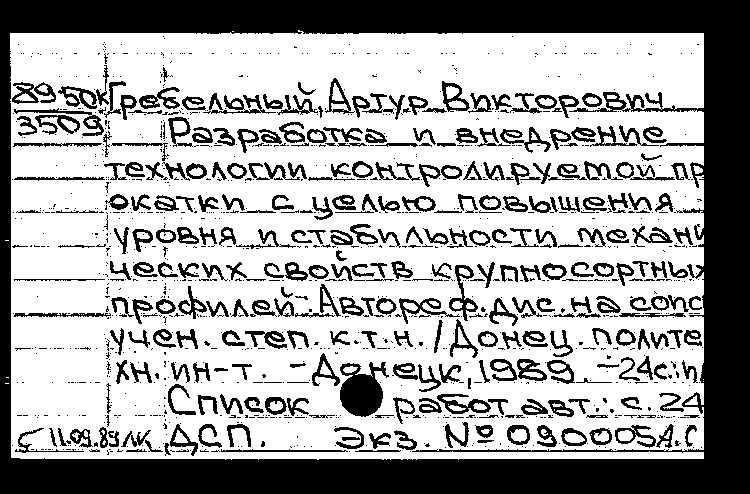 89-50к Гребельный, Артур Викторович.
3509 Разработка и внедрение
технологии контролируемой пр
окатки с целью повышения
уровня и стабильности механи
ческих свойств крупносортных
профилей: Автореф. дис. на соиск
учен. степ. к.т.н. / Донец. политe
хн. ин-т. - Донецк, 1989. - 24с.:
Список работ авт.: с. 24
11.09.89 ДСП. Экз. № 090005 А.С